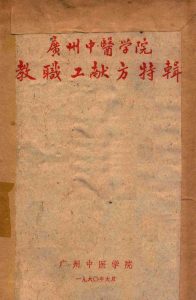 廣州中醫学院
教職工献方特輯
广州中医学院
一九六〇年九月